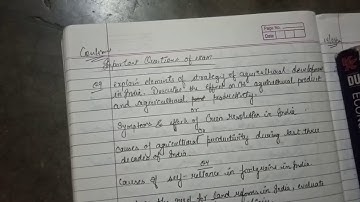 Page No.
Date
Important Questions of exam
Q1 Explain elements of strategy of agricultural development
in India. Describe the effect on agricultural product
and agricultural productivity.
or
Symptoms & effect of Green Revolution in India
or
causes of agricultural productivity during last three
decades of India.
or
Causes of self-reliance in foodgrains in India.
the need for land reforms in India, evaluate